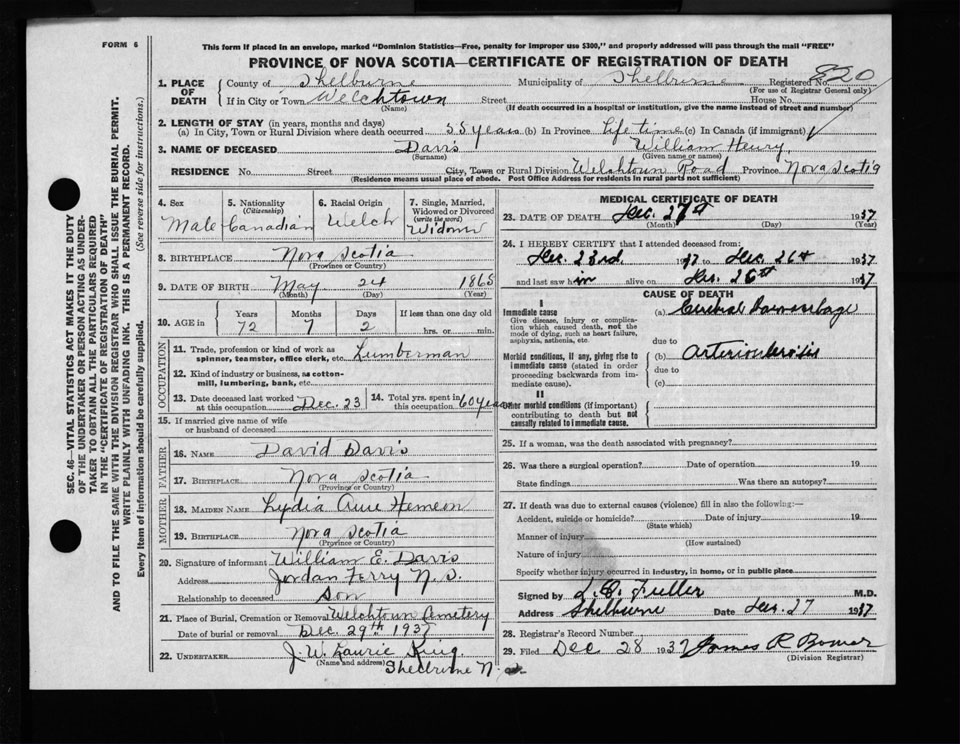 FORM 6
This form if placed in an envelope, marked "Dominion Statistics—Free, penalty for improper use $300," and properly addressed will pass through the mail "FREE"
PROVINCE OF NOVA SCOTIA—CERTIFICATE OF REGISTRATION OF DEATH
1. PLACE OF DEATH County of Shelburne Municipality of Shelburne Registered No. 820
(For use of Registrar General only)
If in City or Town Welchtown Street House No.
(Name) (If death occurred in a hospital or institution, give the name instead of street and number)
2. LENGTH OF STAY (in years, months and days)
(a) In City, Town or Rural Division where death occurred 55 years (b) In Province Life time (c) In Canada (if immigrant)
3. NAME OF DECEASED Davis William Henry
(Surname) (Given name or names)
RESIDENCE No. Street City, Town or Rural Division Welchtown Road Province Nova Scotia
(Residence means usual place of abode. Post Office Address for residents in rural parts not sufficient)
4. Sex Male
5. Nationality (Citizenship) Canadian
6. Racial Origin Welch
7. Single, Married, Widowed or Divorced (write the word) Widower
8. BIRTHPLACE Nova Scotia
(Province or Country)
9. DATE OF BIRTH May 24 1865
(Month) (Day) (Year)
10. AGE in Years Months Days If less than one day old
72 7 2 hrs. or min.
OCCUPATION
11. Trade, profession or kind of work as spinner, teamster, office clerk, etc. Lumberman
12. Kind of industry or business, as cotton-mill, lumbering, bank, etc.
13. Date deceased last worked at this occupation Dec. 23
14. Total yrs. spent in this occupation 60 years
15. If married give name of wife or husband of deceased
FATHER
16. NAME David Davis
17. BIRTHPLACE Nova Scotia
(Province or Country)
MOTHER
18. MAIDEN NAME Lydia Ann Hemeon
19. BIRTHPLACE Nova Scotia
(Province or Country)
20. Signature of informant William E. Davis
Address Jordan Ferry N.S.
Relationship to deceased Son
21. Place of Burial, Cremation or Removal Welchtown Cemetery
Date of burial or removal Dec. 29th 1937
22. UNDERTAKER J. W. Laurie King,
(Name and address) Shelburne N.S.
MEDICAL CERTIFICATE OF DEATH
23. DATE OF DEATH Dec. 27th 1937
(Month) (Day) (Year)
24. I HEREBY CERTIFY that I attended deceased from:
Dec. 23rd 1937 to Dec. 26th 1937
and last saw him alive on Dec. 26th 1937
CAUSE OF DEATH
I
Immediate cause
Give disease, injury or complication which caused death, not the mode of dying, such as heart failure, asphyxia, asthenia, etc.
(a) Cerebral Haemorrhage
due to
Morbid conditions, if any, giving rise to immediate cause (stated in order proceeding backwards from immediate cause).
(b) Arteriosclerosis
due to
(c)
II
Other morbid conditions (if important) contributing to death but not causally related to immediate cause.
25. If a woman, was the death associated with pregnancy?
26. Was there a surgical operation? Date of operation 19
State findings Was there an autopsy?
27. If death was due to external causes (violence) fill in also the following:—
Accident, suicide or homicide? Date of injury 19
(State which)
Manner of injury
(How sustained)
Nature of injury
Specify whether injury occurred in industry, in home, or in public place
Signed by L. O. Fuller M.D.
Address Shelburne Date Dec. 27 1937
28. Registrar's Record Number
29. Filed Dec 28 1937 James R Bower
(Division Registrar)
SEC. 46—VITAL STATISTICS ACT MAKES IT THE DUTY
OF THE UNDERTAKER OR PERSON ACTING AS UNDER-
TAKER TO OBTAIN ALL THE PARTICULARS REQUIRED
IN THE "CERTIFICATE OF REGISTRATION OF DEATH"
AND TO FILE THE SAME WITH THE DIVISION REGISTRAR WHO SHALL ISSUE THE BURIAL PERMIT.
WRITE PLAINLY WITH UNFADING INK. THIS IS A PERMANENT RECORD.
Every item of information should be carefully supplied. (See reverse side for instructions.)